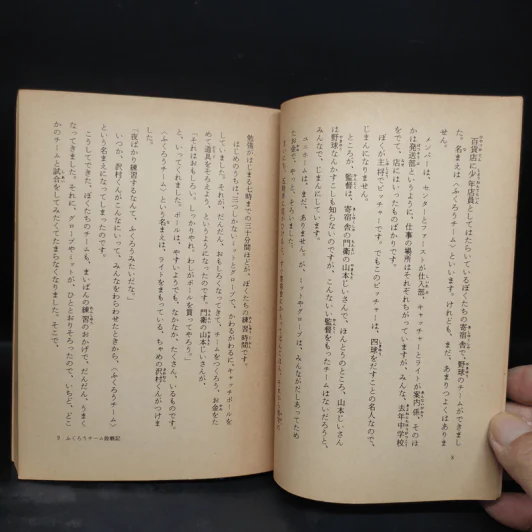 百貨店に少年店員としてはたらいているぼくたちの寄宿舎で、野球のチームができまし
た。名まえは〈ふくろうチーム〉といいます。けれども、まだ、あまりつよくはありま
せん。
メンバーは、センターとファーストが仕入部、キャッチャーとライトが案内係、そのほ
かは発送部というように、仕事の場所はそれぞれちがっていますが、みんな、去年中学校
をでて、店にはいったものばかりです。
ぼくが主将で、ピッチャーです。でもこのピッチャーは、四球をだすことの名人なので、
じまんになりません。
ところが、監督は、寄宿舎の門衛の山本じいさんで、ほんとうのところ、山本じいさん
は野球なんかすこしも知らないのですが、こんないい監督をもったチームはないだろうと、
みんなで、じまんにしています。
ユニホームは、まだ、ありません。が、ミットやグローブは、みんながだしあってため
たお金で、やっと、そろいました。
6
勉強がはじまる七時までの三十分間ほどが、ぼくたちの練習時間です。
はじめのうちは、三つしかないミットとグローブで、かわるがわるにキャッチボールを
していました。それが、だんだん、おもしろくなってきて、チームをつくろう、お金をた
めて、道具をそろえよう、というようになったのです。門衛の山本じいさんが、
「それはおもしろい。しっかりやれ。わしがボールを買ってやろう」
と、いってくれました。ボールは、やすいようでも、なかなか、たくさん、いるものです。
〈ふくろうチーム〉という名まえは、ライトをまもっている、ちゃめの沢村くんがつけま
した。
「夜ばかり練習するなんて、ふくろうみたいだな。」
いつか、沢村くんがこんなにいって、みんなをわらわせたときから、〈ふくろうチーム〉
という名まえになってしまったのです。
こうしてできた、ぼくたちのチームも、まいばんの練習のおかげで、だんだん、うまく
なってきました。それに、グローブやミットが、ひととおりそろったので、いちど、どこ
かのチームと試合をしてみたくてたまらなくなりました。そこで、
7 ふくろうチーム敗戦記